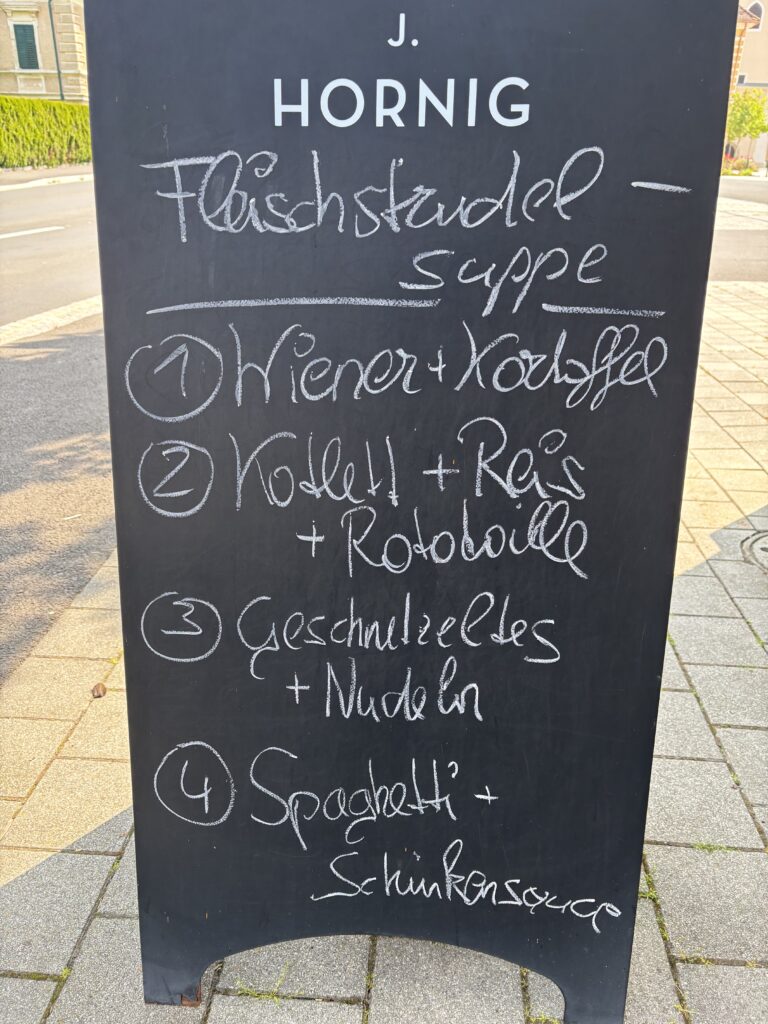 J.
HORNIG
Fleischstrudel -
suppe
1 Wiener + Kartoffel
2 Kotlett + Reis
+ Rotatoille
3 Geschnetzeltes
+ Nudeln
4 Spaghetti +
Schinkensauce